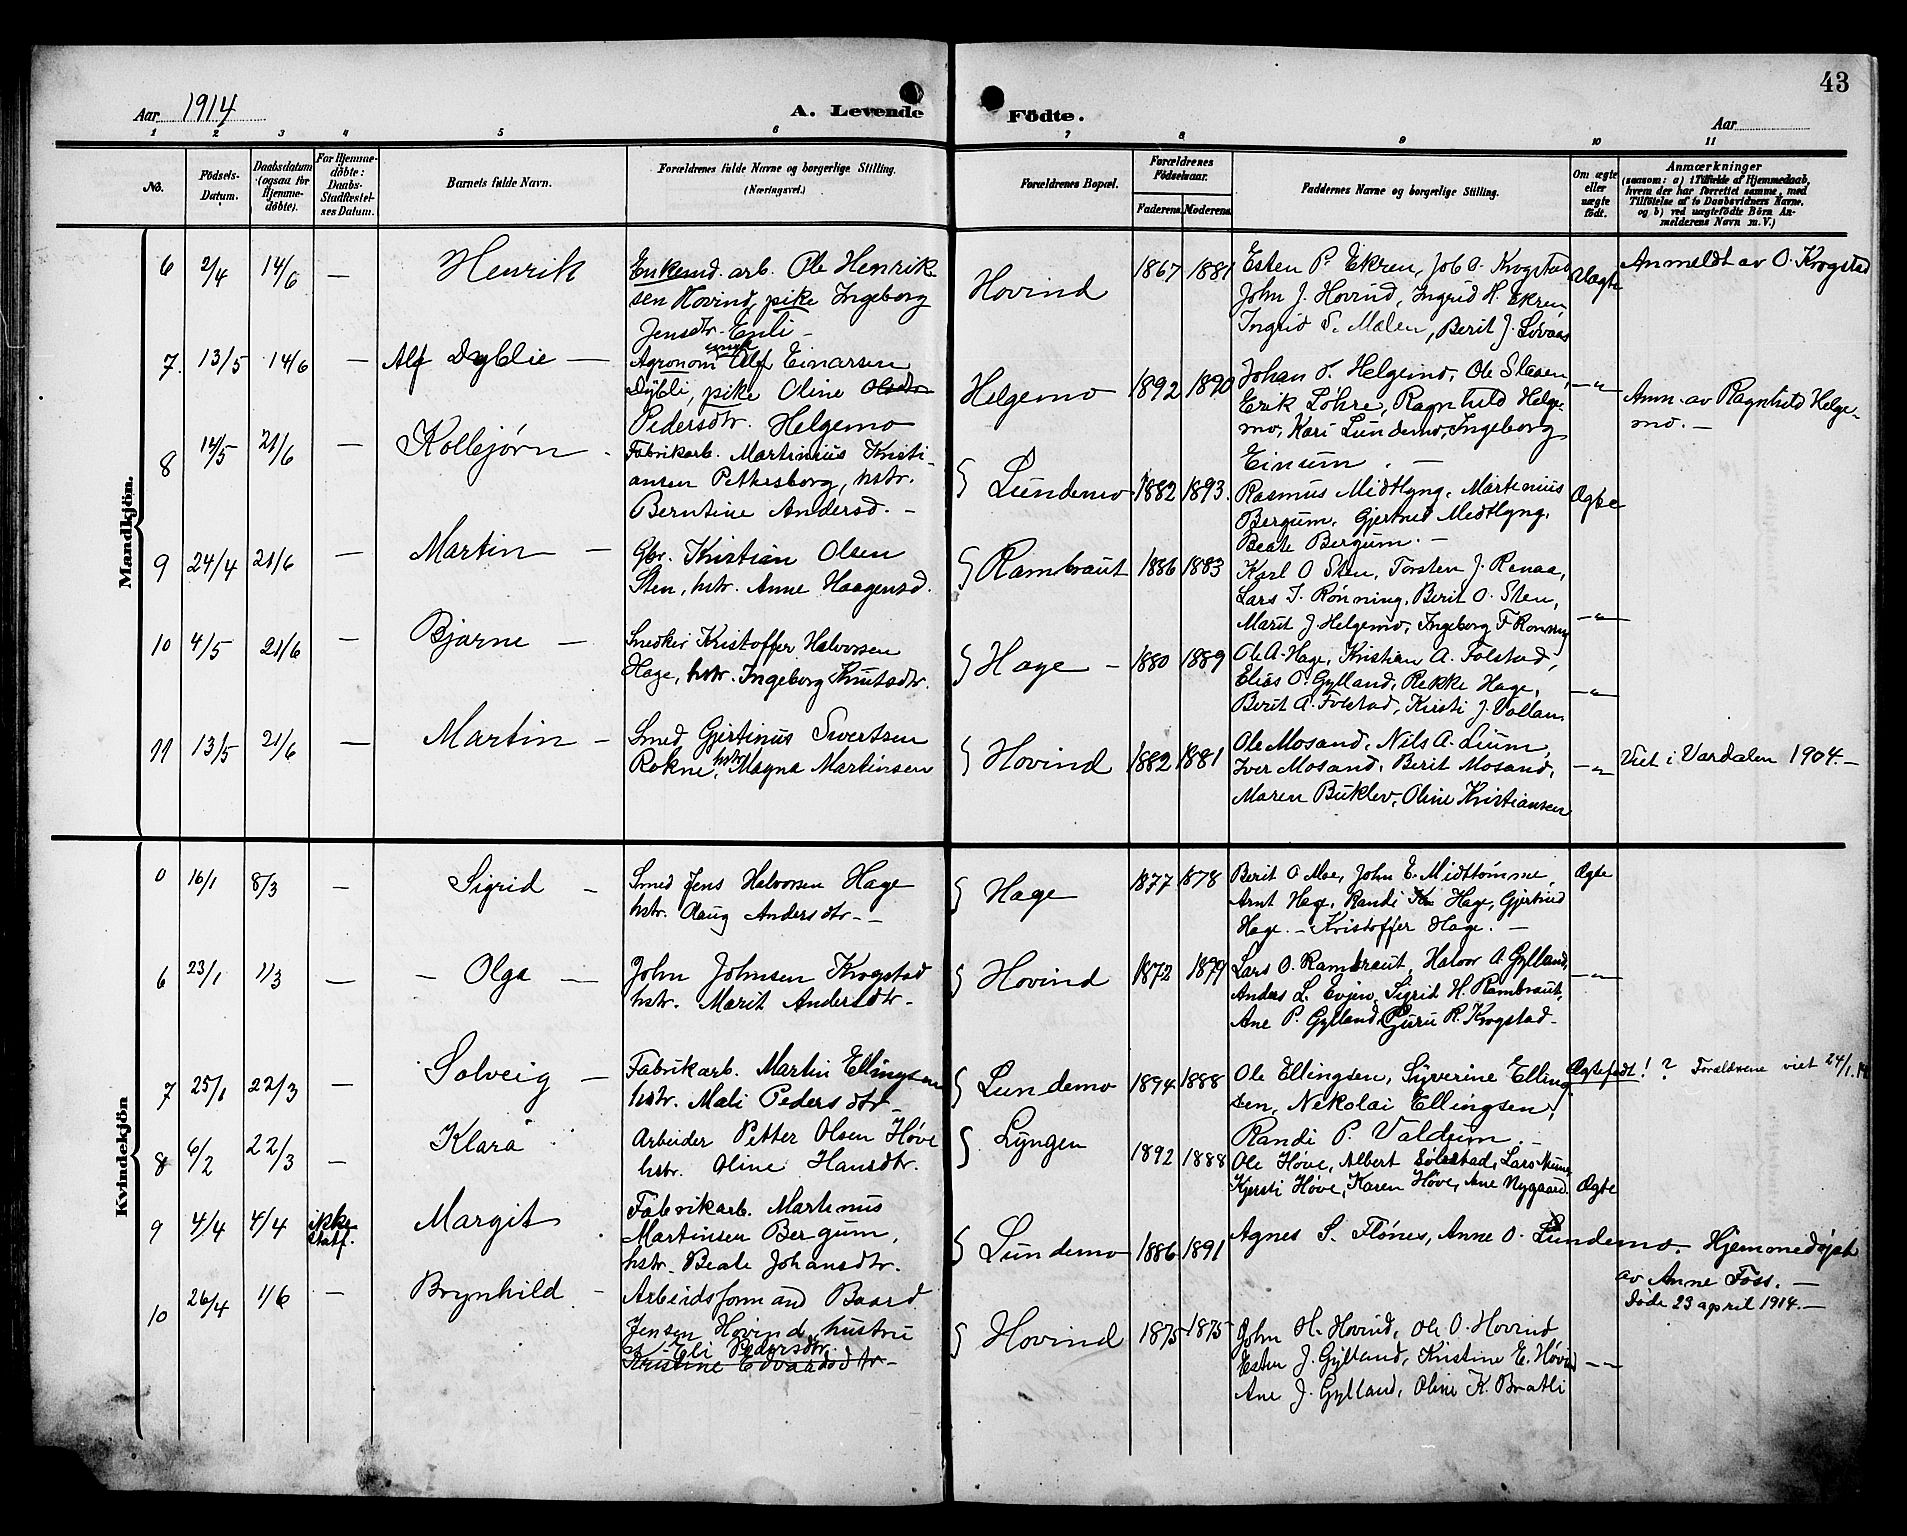 43
Aar 1914
A. Levende Födte.
Aar
1 2 3 4 5 6 7 8 9 10 11
No.
Födsels-Datum.
Daabsdatum (ogsaa for Hjemme-döbte).
For Hjemme-döbte: Daabs-Stadfestel-ses Datum.
Barnets fulde Navn.
Forældrenes fulde Navne og borgerlige Stilling.
(Næringsvei.)
Forældrenes Bopæl.
Forældrenes Födselsaar.
Faderens. Moderens.
Faddernes Navne og borgerlige Stilling.
Om ægte eller uægte født.
Anmærkninger
(saasom: a) i Tilfælde af Hjemmedaab,
hvem der har forrettet samme, med
Tilföielse af to Daabsvidners Navne.
og b) ved uægtefödte Börn An-
melderens Navn m. V.)
Mandkjön.
6 2/4 14/6 — Henrik
Enkemd. arb. Ole Henrik
sen Hovind, pike Ingeborg
Jensdtr. Enli –
Hovind 1867 1881
Esten P. Ekren, Job O. Krogstad
John J. Hovind, Ingrid H. Ekren
Ingrid S. Mælen, Berit J. Løvaas
Uægte
Anmeldt av O. Krogstad
7. 13/5 14/6 — Alf Dyblie —
Agronom ungk Alf Einarsen
Dybli, pike Oline
Pedersdtr. Helgemo
Helgemo 1892 1890
Johan T. Helgemo, Ole Stesen,
Erik Løhre, Ragnhild Helge-
mo, Kari Lundemo, Ingeborg
Einum. —
—"—
Anm. av Ragnhild Helge-
mo. —
8 14/5 21/6 — Kolbjørn -
Fabrikarb. Martinius Kristi-
ansen Petkesborg, hstr.
Berntine Andersd. –
Lundemo 1882 1893.
Rasmus Midtlyng, Martinius
Bergum, Gjertrud Medtlyng,
Beate Bergum. –
Ægte
9 24/4 21/6 — Martin —
Gbr. Kristian Olsen
Sten, hstr. Anne Haagensd.
Rambraut 1886 1883
Karl O Sten, Torsten J. Renaa,
Lars I. Rønning, Berit O. Sten,
Marit J. Helgemo, Ingeborg F Rønning
—"—
10 4/5 21/6 — Bjarne —
Snedker Kristoffer Halvorsen
Hage, hstr. Ingeborg Knutsdtr.
Hage – 1880 1889
Ole A. Hage, Kristian A. Folstad,
Elias O. Gylland, Rekke Hage,
Berit A. Folstad, Kirsti J. Vollan
—"—
11 13/5 21/6 — Martin —
Smed Gjertinus Sivertsen
Rokne, hstr. Magna Martinsen
Hovind 1882 1881
Ole Mosand, Nils A. Lium,
Iver Mosand, Berit Mosand,
Maren Buklev, Oline Kristiansen
—"—
Viet i Værdalen 1904. —
Kvindekjön
16/1 8/3 — Sigrid —
Smed Jens Halvorsen Hage
hstr. Olaug Andersdtr. –
Hage 1877 1878
Berit O Moe, John E. Midttømme
Arnt Hage, Randi Hage, Gjertrud
Hage. – Kristoffer Hage. –
Ægte
6 23/1 1/3 — Olga —
John Johnsen Krogstad
hstr. Marit Andersdtr. –
Hovind 1872
Lars O. Rambraut, Halvor A. Gylland,
Anders L. Evjen, Sigrid H. Rambraut,
Ane P. Gylland, Guru R. Krogstad –
—"—
7 25/1 22/3 — Solveig —
Fabrikarb. Martin Ellingsen
hstr. Mali Pedersdtr –
Lundemo 1894 1888
Ole Ellingsen, Syverine Elling
sen, Nikolai Ellingsen,
Randi P. Valdum. –
Ægtefødt! ? Forældrene viet 24/1.14
8 6/2 22/3 — Klara
Arbeider Petter Olsen Høve
hstr. Oline Hansdtr.
Lyngen 1892 1888
Ole Høve, Albert Solstad, Lars
Kjersti Høve, Karen Høve, Ane Nygaard.
Ægte
9 4/4 4/4 ikke statf. Margit
Fabrikarb. Martinus
Martinsen Bergum,
hstr. Beate Johansdtr.
Lundemo 1886 1891
Agnes S. Flønes, Anne O. Lundemo.
Hjemmedøpt
av Anne Foss. —
Døde 23 april 1914. —
10 26/4 1/6 — Brynhild –
Arbeidsformand Baard
Jensen Hovind, hustru
Eli Pedersdtr.
Kristine Edvardsdtr –
Hovind 1875 1875
John H. Hovind, Ole O. Hovind
Esten J. Gylland, Kristine E. Høvind
Ane J. Gylland, Oline K. Bratli
—"—